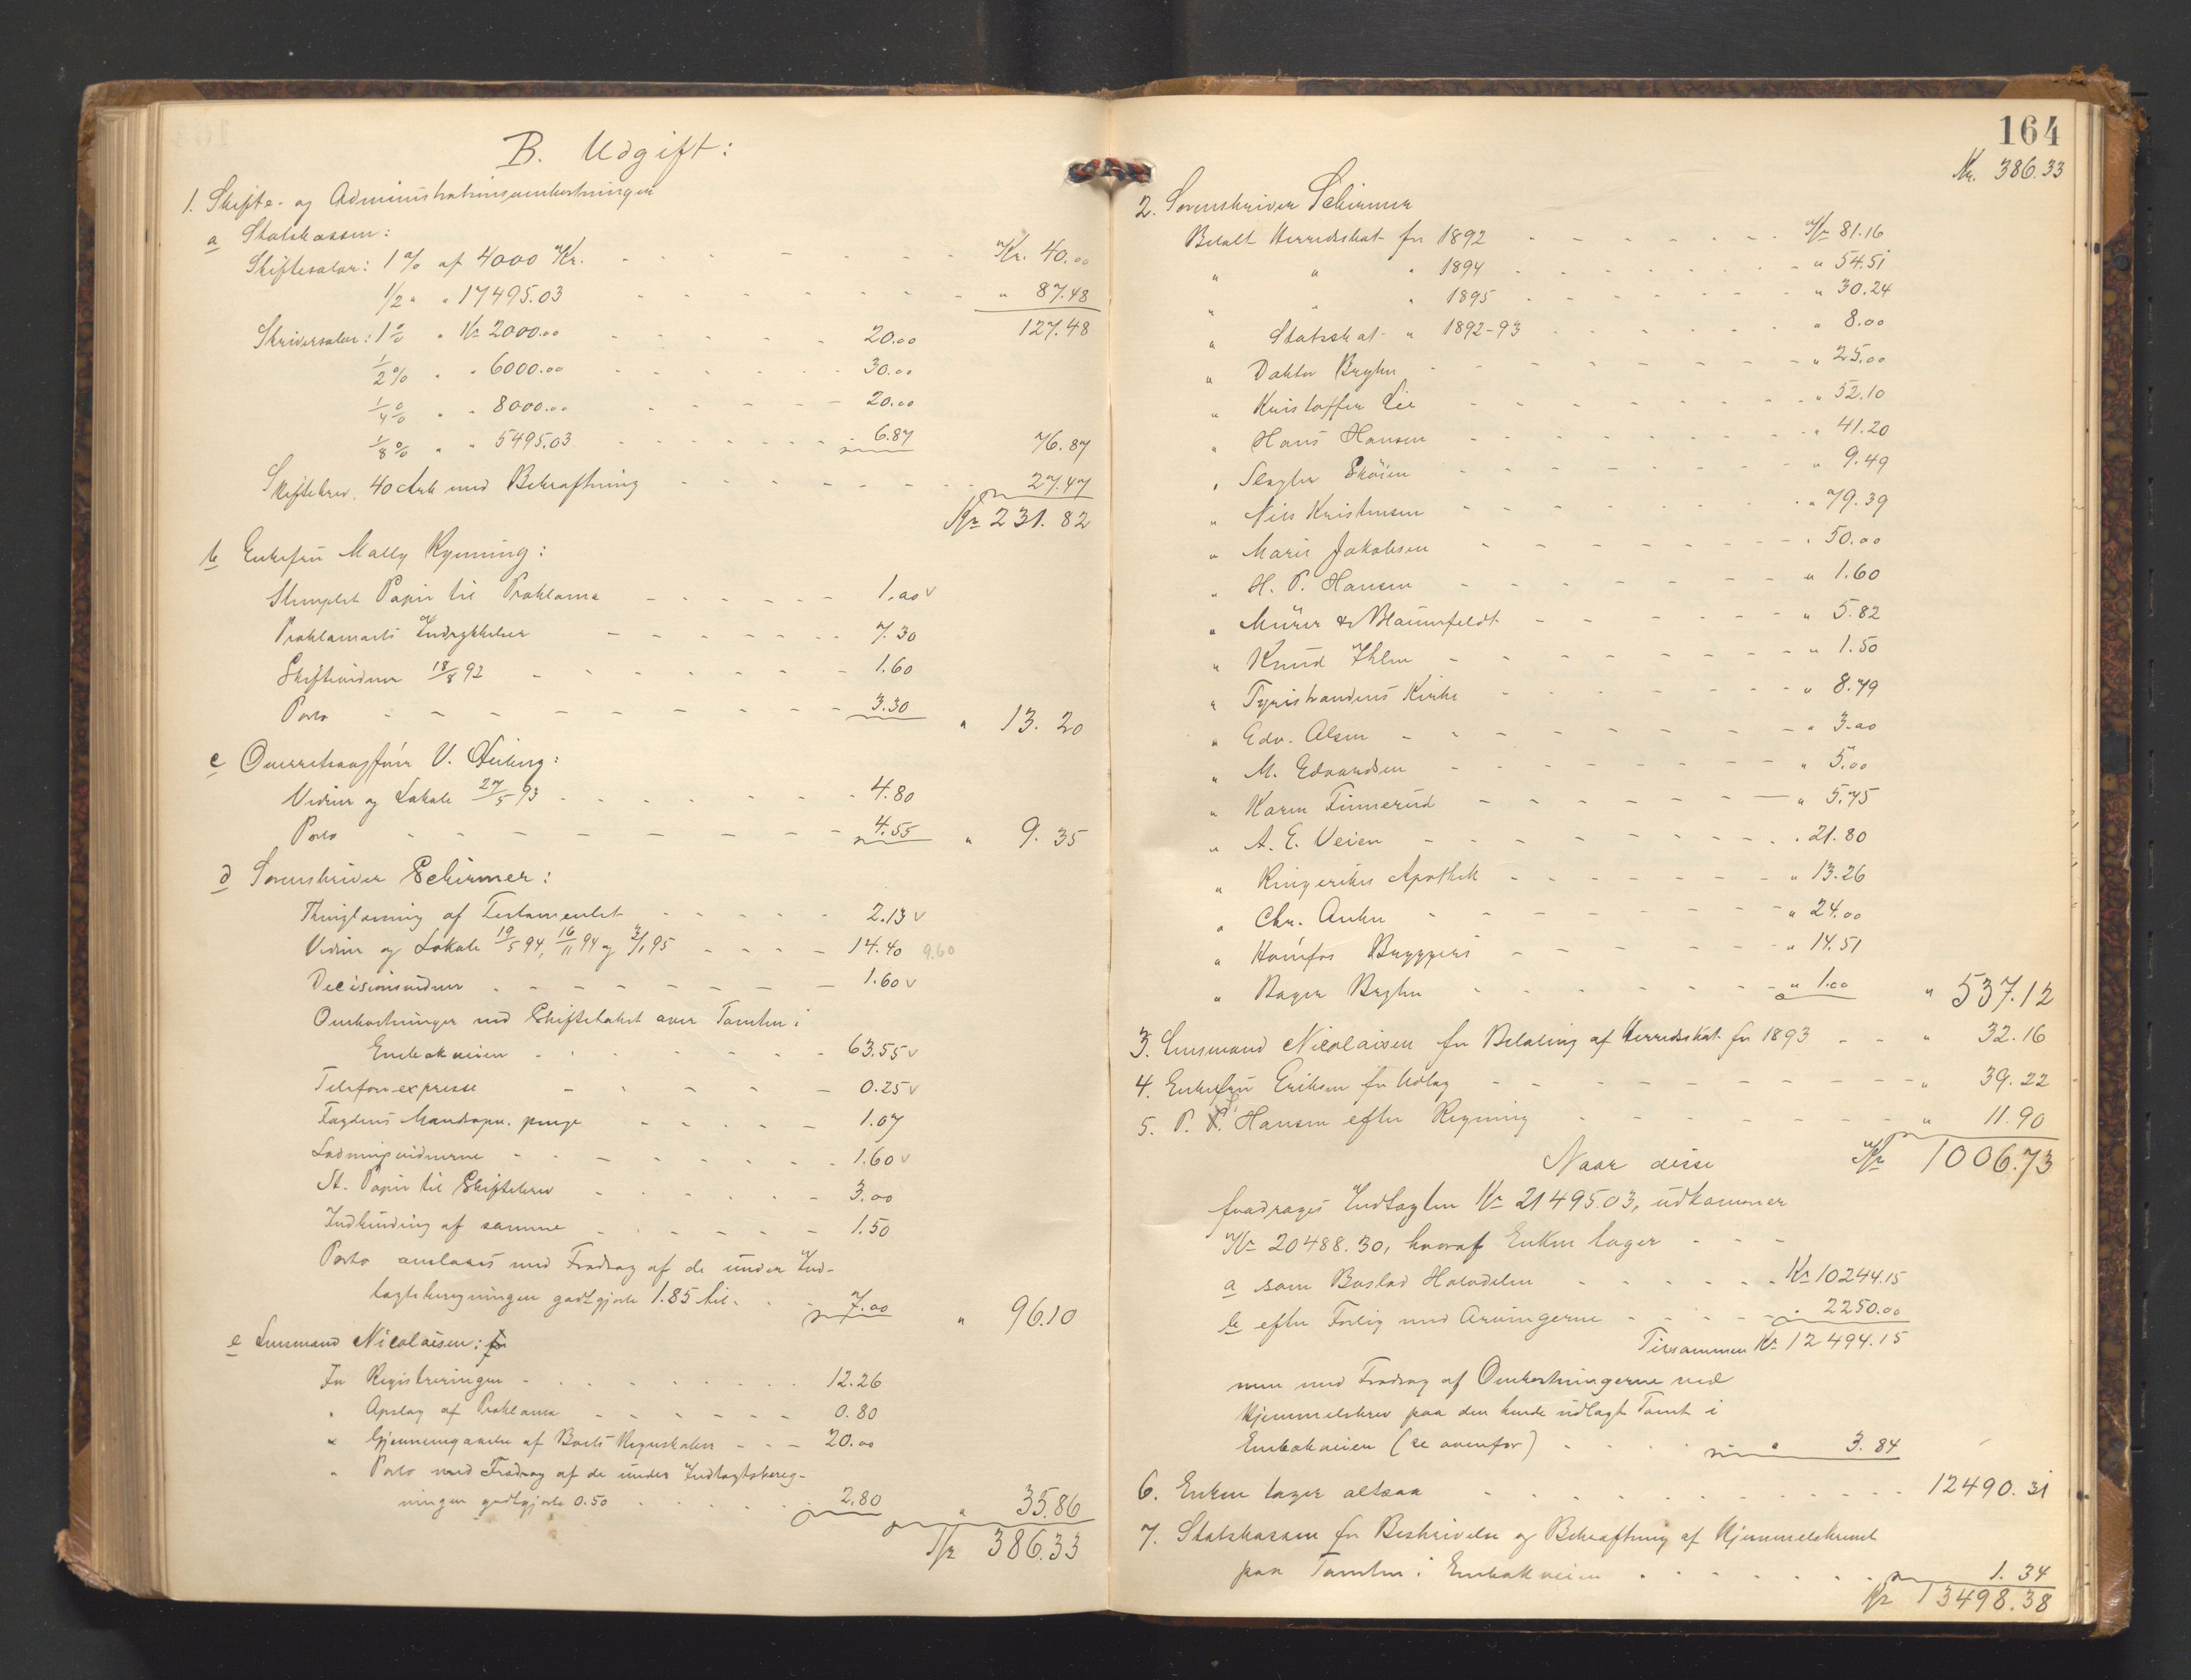 B. Udgift:
1. Skifte- og Administrationsomkostninger
a Statskassen:
Skiftesalær: 1 % af 4000 Kr. Kr. 40.00
1/2 " " 17495.03 " 87.48
127.48
Skriversalær: 1 % " Kr 2000.00 20.00
1/2 % " " 6000.00 30.00
1/4 % " " 8000.00 20.00
1/8 % " " 5495.03 6.87 76.87
Skiftebrev. 40 Ark med Bekræftning 27.47
Kr 231.82
b Enkefru Mally Rynning:
Stemplet Papir til Proklama 1.00 v
Proklamaets Indrykkelser 7.30
Skiftevidner 18/8 92 1.60
Porto 3.30 " 13.20
c Overretssagfører V.
Vidner og Lokale 27/5 93 4.80
Porto 4.55 " 9.35
d Sorenskriver Schirmer:
Thinglæsning af Testamentet 2.13 v
Vidner og Lokale 19/5 94, 16/11 94 og 3/1 95 14.40 9.60
Decisionsvidner 1.60 v
Omkostninger ved Skiftetaxt over Tomten i
Embakveien 63.55 v
Telefonexpresse 0.25 v
Fogdens penge 1.07
Lodningsvidnerne 1.60 v
St. Papir til Skiftebrev 3.00
Indbinding af samme 1.50
Porto anslaaes med Fradrag af de under Ind-
tægtsberegningen godtgjorte 1.85 til 7.00 " 96.10
e Lensmand Nicolaisen:
For Registreringen 12.26
" Opslag af Proklama 0.80
" Gjennemgaaelse af Boets Regnskaber 20.00
" Porto med Fradrag af de under Indtægtsbereg-
ningen godtgjorte 0.50 2.80 " 35.86
Kr 386.33
164
Kr. 386.33
2. Sorenskriver Schirmer
Betalt Herredsskat for 1892 Kr 81.16
" " " 1894 " 54.51
" " " 1895 " 30.24
" Statsskat " 1892-93 " 8.00
" Doktor Bryhn " 25.00
" Kristoffer Lie " 52.10
" Hans Hansen " 41.20
" Slagter Sköien " 9.49
" Nils Kristensen " 79.39
" Marie Jakobsen " 50.00
" H. P. Hansen " 1.60
" Mürer & Blaunfeldt " 5.82
" Knud Ihlen " 1.50
" Tyristrandens Kirke " 8.79
" Edv. Olsen " 3.00
" M. Edvardsen " 5.00
" Karen Finnerud " 5.75
" A. E. Veien " 21.80
" Ringerikes Apothek " 13.26
" Chr. Anker " 24.00
" Hønefos Bryggeri " 14.51
" Bager Bryhn " 1.00 " 537.12
3. Lensmand Nicolaisen for Betaling af Herredsskat for 1893 " 32.16
4. Enkefru Eriksen for Udlæg " 39.22
5. P. Hansen efter Regning " 11.90
Naar disse Kr 1006.73
fradrages Indtægten Kr 21495.03, udkommer
Kr 20488.30, hvoraf Enken tager
a som Boslod Halvdelen Kr 10244.15
b efter Forlig med Arvingerne " 2250.00
Tilsammen Kr 12494.15
men med Fradrag af Omkostningerne ved
Hjemmelsbrev paa den hende udlagte Tomt i
Embakveien (se ovenfor) " 3.84
6. Enken tager altsaa 12490.31
7. Statskassen for Beskrivelse og Bekræftning af Hjemmelsbrevet
paa Tomten i Embakveien 1.34
Kr 13498.38